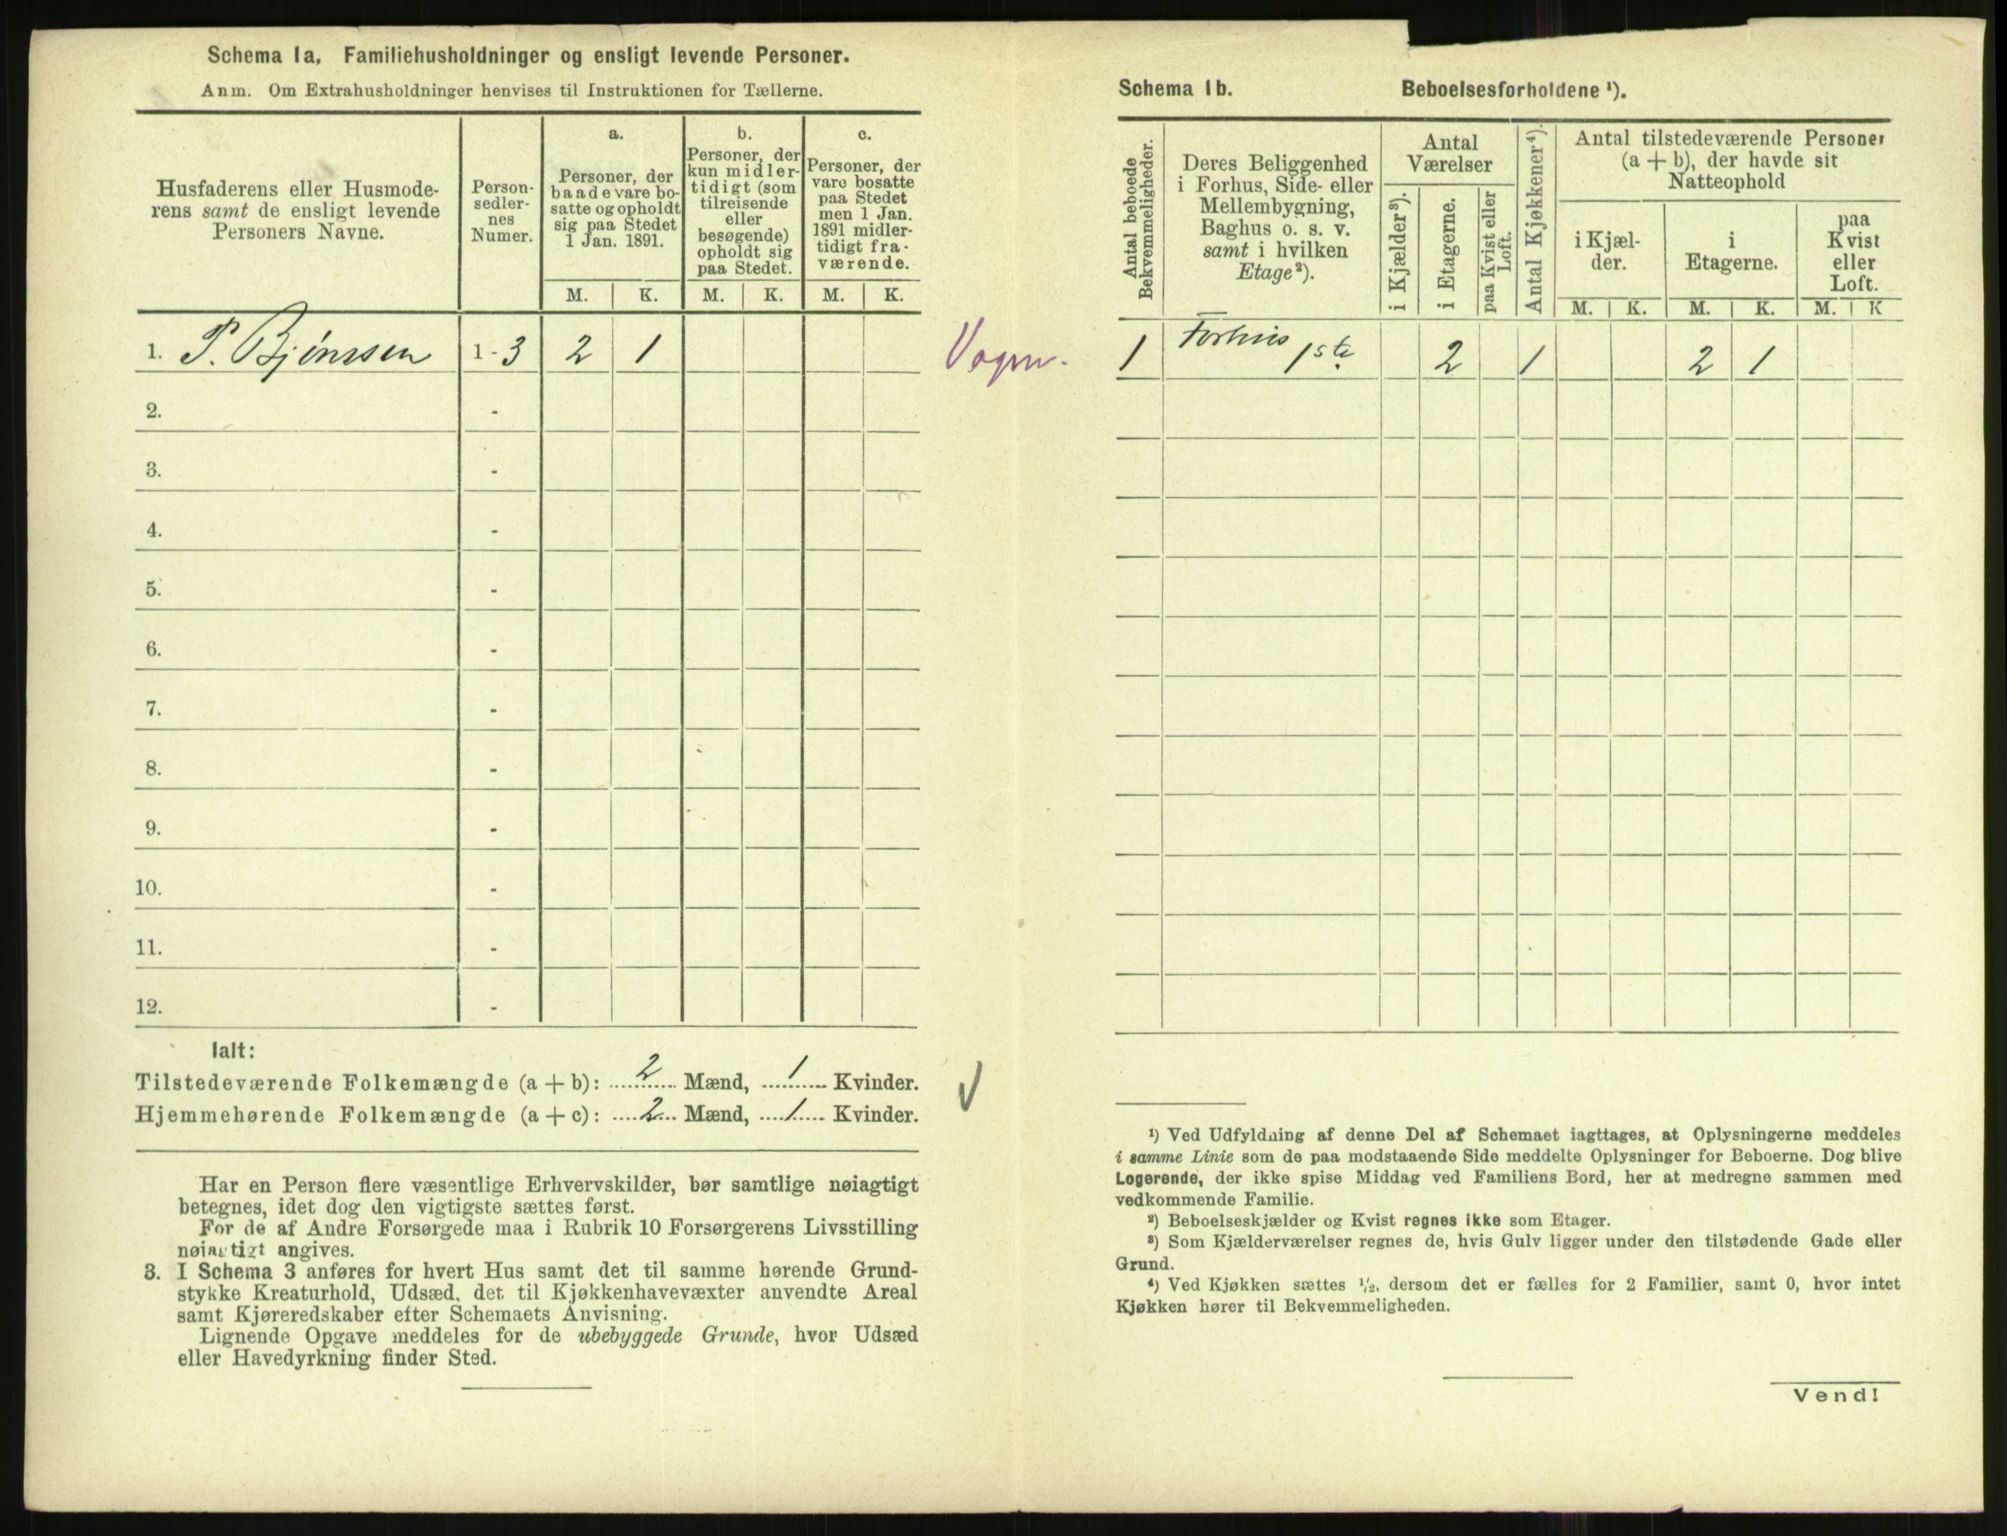 Schema 1a. Familiehusholdninger og ensligt levende Personer.
Anm. Om Extrahusholdninger henvises til Instruktionen for Tællerne.
Husfaderens eller Husmode-
rens samt de ensligt levende
Personers Navne.
Person-
sedler-
nes
Numer.
a.
Personer, der
baade vare bo-
satte og opholdt
sig paa Stedet
1 Jan. 1891.
b.
Personer, der
kun midler-
tidigt (som
tilreisende
eller
besøgende)
opholdt sig
paa Stedet.
c.
Personer, der
vare bosatte
paa Stedet
men 1 Jan.
1891 midler-
tidigt fra-
værende.
M. K. M. K. M. K.
1. P. Bjørnssen 1 - 3 2 1
2. -
3. -
4. -
5. -
6. -
7. -
8. -
9. -
10. -
11. -
12. -
Ialt:
Tilstedeværende Folkemængde (a + b): 2 Mænd, 1 Kvinder.
Hjemmehørende Folkemængde (a + c): 2 Mænd, 1 Kvinder.
Har en Person flere væsentlige Erhvervskilder, bør samtlige nøiagtigt
betegnes, idet dog den vigtigste sættes først.
For de af Andre Forsørgede maa i Rubrik 10 Forsørgerens Livsstilling
nøiagtigt angives.
3. I Schema 3 anføres for hvert Hus samt det til samme hørende Grund-
stykke Kreaturhold, Udsæd, det til Kjøkkenhavevæxter anvendte Areal
samt Kjøreredskaber efter Schemaets Anvisning.
Lignende Opgave meddeles for de ubebyggede Grunde, hvor Udsæd
eller Havedyrkning finder Sted.
Schema 1b. Beboelsesforholdene ¹).
Antal beboede
Bekvemmeligheder.
Deres Beliggenhed
i Forhus, Side- eller
Mellembygning,
Baghus o. s. v.
samt i hvilken
Etage ²).
Antal
Værelser
i Kjælder ³).
i Etagerne.
paa Kvist eller
Loft.
Antal Kjøkkener ⁴).
Antal tilstedeværende Personer
(a + b), der havde sit
Natteophold
i Kjæl-
der.
i
Etagerne.
paa
Kvist
eller
Loft.
M. K. M. K. M. K
1 Forhus 1ste 2 1 2 1
¹) Ved Udfyldning af denne Del af Schemaet iagttages, at Oplysningerne meddeles
i samme Linie som de paa modstaaende Side meddelte Oplysninger for Beboerne. Dog blive
Logerende, der ikke spise Middag ved Familiens Bord, her at medregne sammen med
vedkommende Familie.
²) Beboelseskjælder og Kvist regnes ikke som Etager.
³) Som Kjælderværelser regnes de, hvis Gulv ligger under den tilstødende Gade eller
Grund.
⁴) Ved Kjøkken sættes ½, dersom det er fælles for 2 Familier, samt 0, hvor intet
Kjøkken hører til Bekvemmeligheden.
Vend!